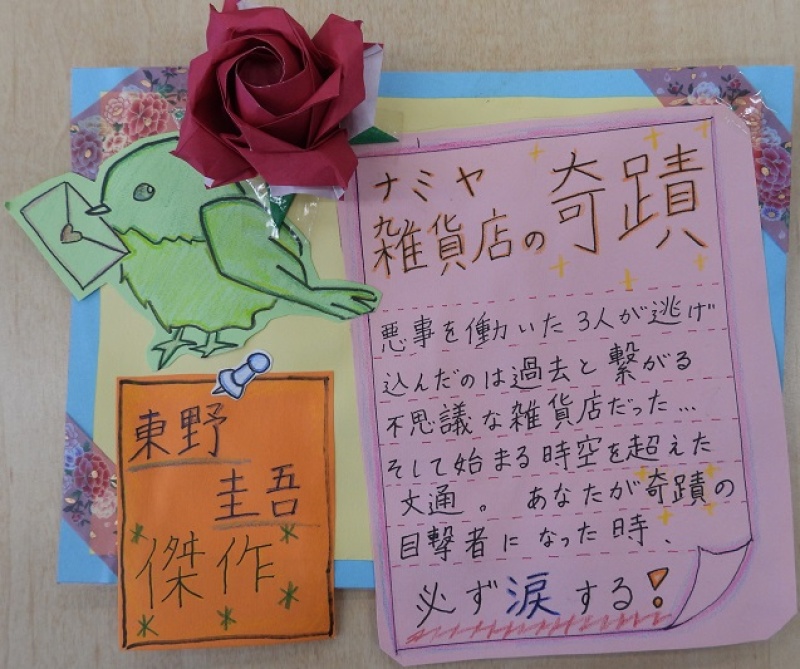 ナミヤ
雑貨店の奇蹟
悪事を働いた3人が逃げ
込んだのは過去と繋がる
不思議な雑貨店だった…
そして始まる時空を超えた
文通。あなたが奇蹟の
目撃者になった時、
必ず涙する!
東野
圭吾
傑作